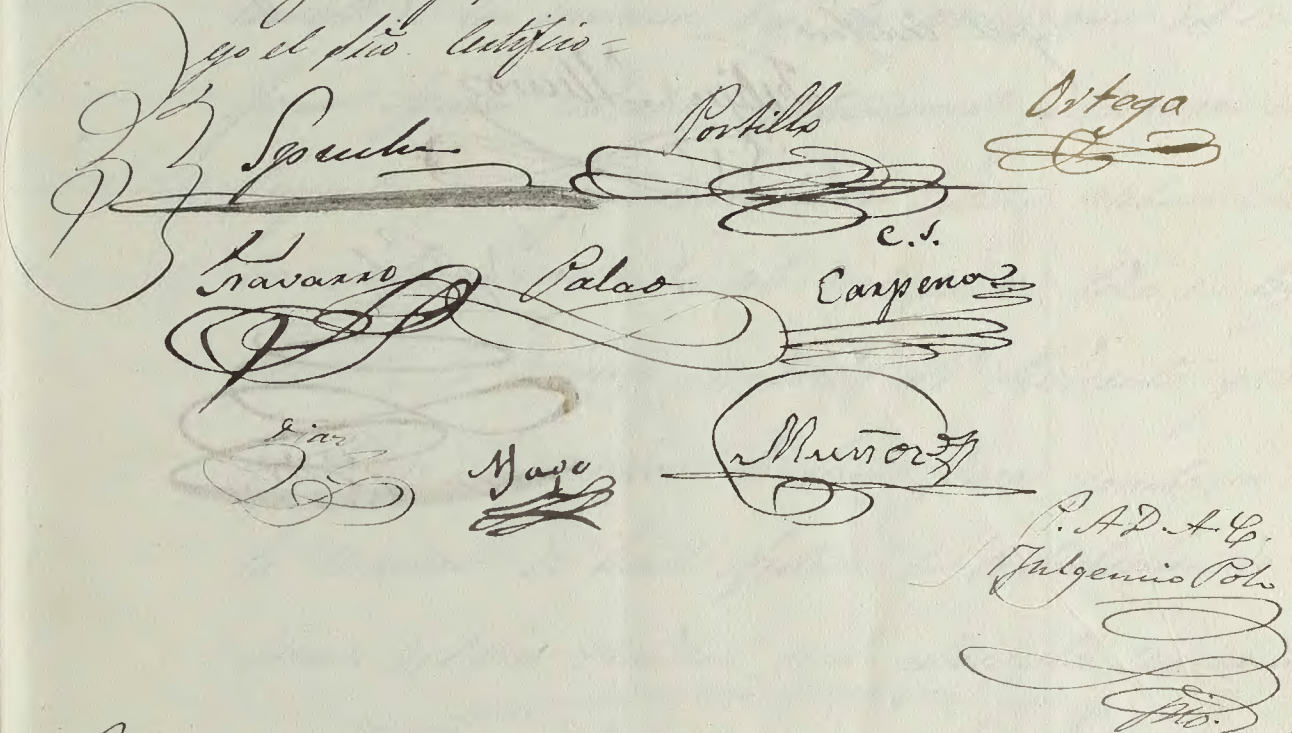 yo el Srio. Certifico =
Portillo
Ortega
C. S.
Navarro
Palao
Carpena
Diaz
Mayo
Muñoz
P. A. D. A. C.
Fulgencio Polo
Srio.